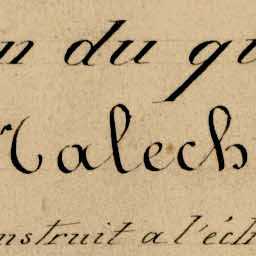 n du qu
Malech
nstruit a l'éch